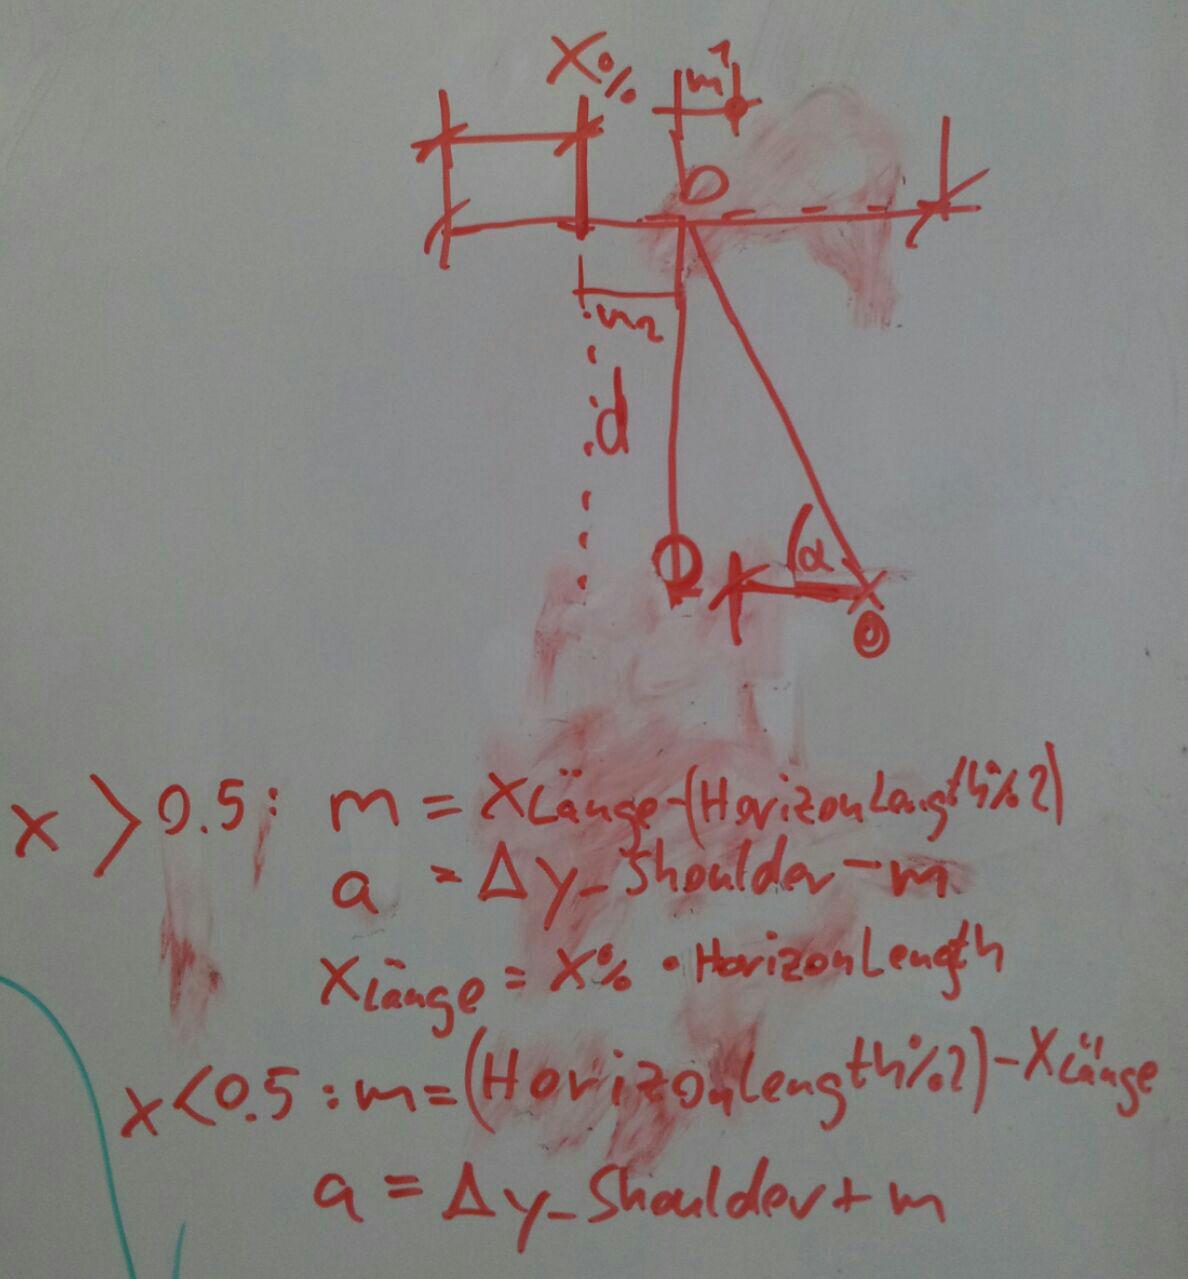 X%
m1
O
m2
d
α
x > 0.5: m = xLänge - (HorizonLength%2)
a = Δy_Shoulder - m
xLänge = x% · HorizonLength
x < 0.5 : m = (HorizonLength%2) - xLänge
a = Δy_Shoulder + m